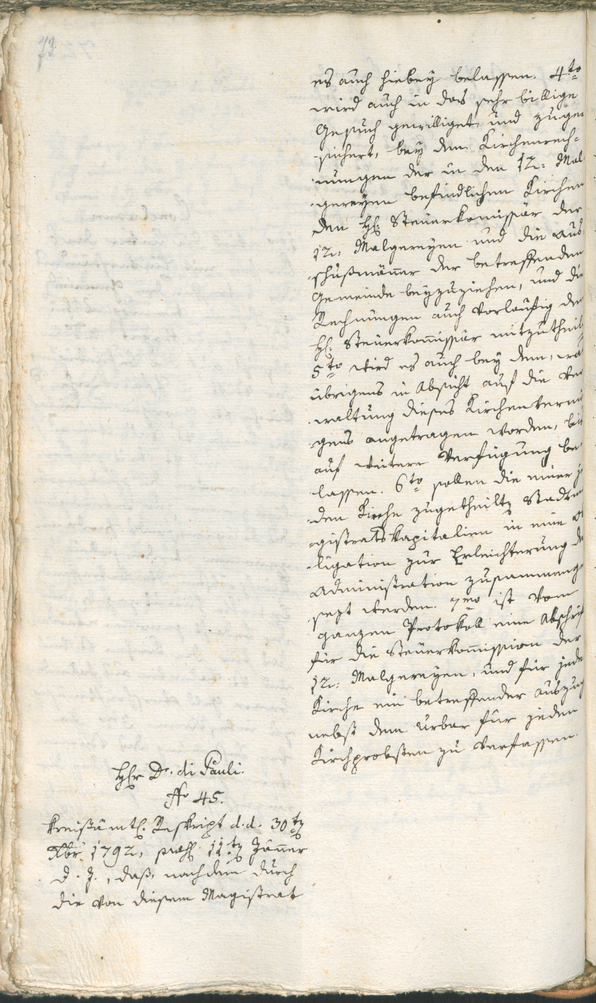 72
es auch hiebey belassen. 4to
wird auch in das sehr billige
Gesuch gewilliget, und zuge-
sichert, bey den Kirchenrech-
nungen der in den 12. Mal-
gereyen befindlichen Kirchen
den H: Steuerkomissär der
12. Malgereyen und die Aus-
schußmänner der betreffenden
Gemeinde beyzuziehen, und die
Rechnungen auch vorläufig dem
H: Steuerkomissär mitzutheilen
5to wird es auch bey dem, was
übrigens in Absicht auf die Ver-
waltung dieses Kirchenvermö-
gens angetragen worden, bis
auf weitere Verfügung be-
lassen. 6to sollen die einer je-
den Kirche zugetheilte Stadtma-
gistratskapitalien in eine Ob-
ligation zur Erleichterung der
Administration zusammenge-
sezt werden. 7mo ist vom
ganzen Protokoll eine Abschrift
für die Steuerkomission der
12. Malgereyen, und für jede
Kirche ein betreffender Auszug
nebst dem Urbar für jeden
Kirchprobsten zu verfassen.
Hr Dr. di Pauli.
No 45.
Kreisämtl. Reskript d.d. 30ten
Xbr. 1792, 11ten Jänner
d. J., daß, nachdem durch
die von diesem Magistrat